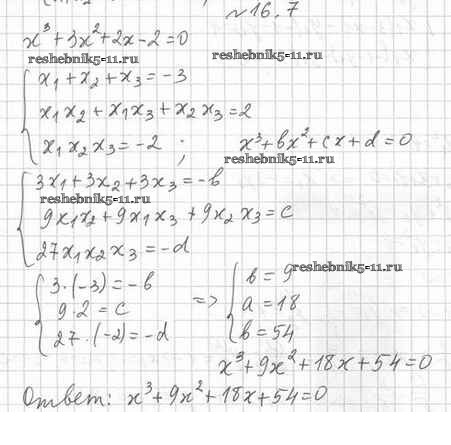 №16.7
x³+3x²+2x-2=0
reshebnik5-11.ru
reshebnik5-11.ru
x₁+x₂+x₃=-3
x₁x₂+x₁x₃+x₂x₃=2
x₁x₂x₃=-2 ; x³+bx²+cx+d=0
reshebnik5-11.ru
3x₁+3x₂+3x₃=-b
reshebnik5-11.ru
9x₁x₂+9x₁x₃+9x₂x₃=c
27x₁x₂x₃=-d
reshebnik5-11.ru
3·(-3)=-b => b=9
9·2=c a=18
27·(-2)=-d b=54
x³+9x²+18x+54=0
Ответ: x³+9x²+18x+54=0